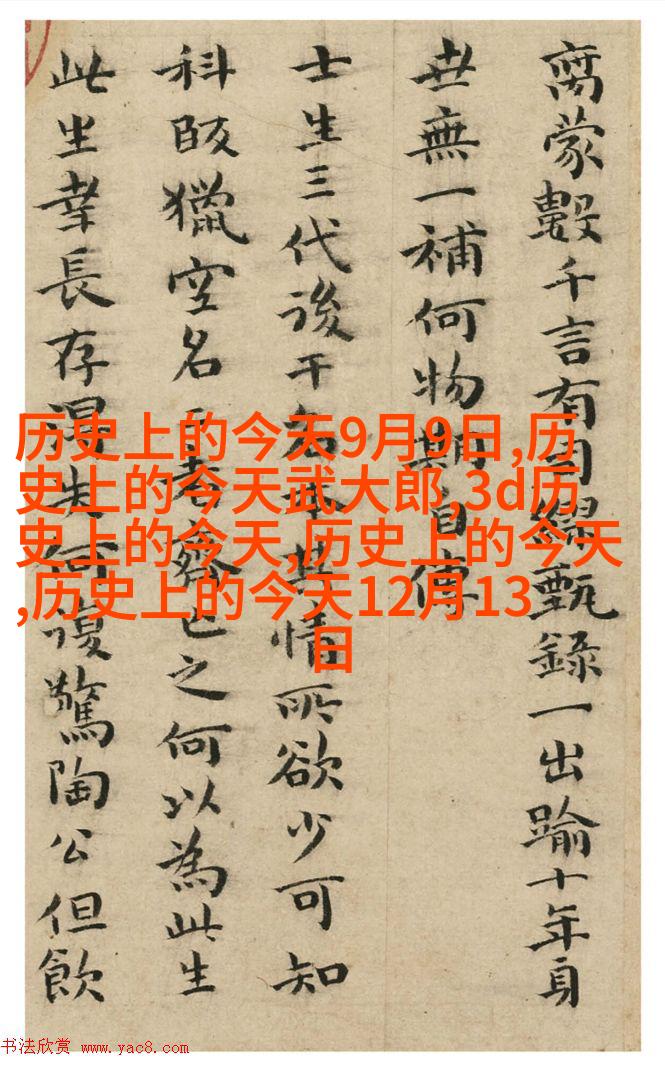 蒙數千言有司繆甄錄一出踰十年身
世無一補何物期自傳
士生三代後干名其情所欲少可知
科級獵空名者已之何以為此生
此生幸長存得失何復驚陶公但飲
历史上的今天9月9日,历
史上的今天武大郎,3d历
史上的今天,历史上的今天
,历史上的今天12月13
日
书法欣赏 www.yac8.com